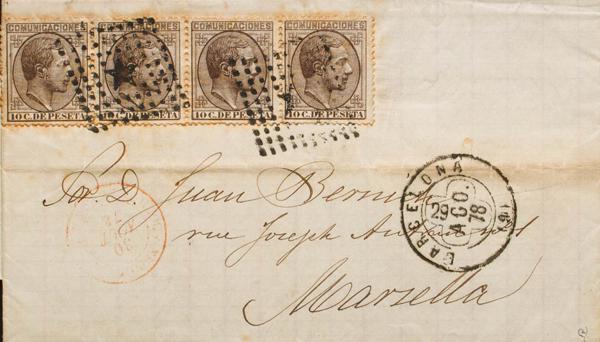 COMUNICACIONES COMUNICACIONES COMUNICACIONES COMUNICACIONES
10 C. DE PESETA 10 C. DE PESETA 10 C. DE PESETA 10 C. DE PESETA
BARCELONA
29 AGO. 78
Sor. D. Juan
rue Joseph
Marsella